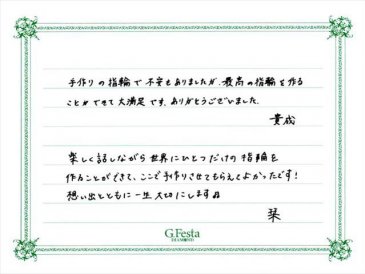 手作りの指輪で不安もありましたが、最高の指輪を作る
ことができて大満足です。ありがとうございました。
貴成
楽しく話しながら世界にひとつだけの指輪を
作ることができて、ここで手作りさせてもらえてよかったです！
想い出とともに一生大切にしますね
栞
G.Festa
DIAMOND